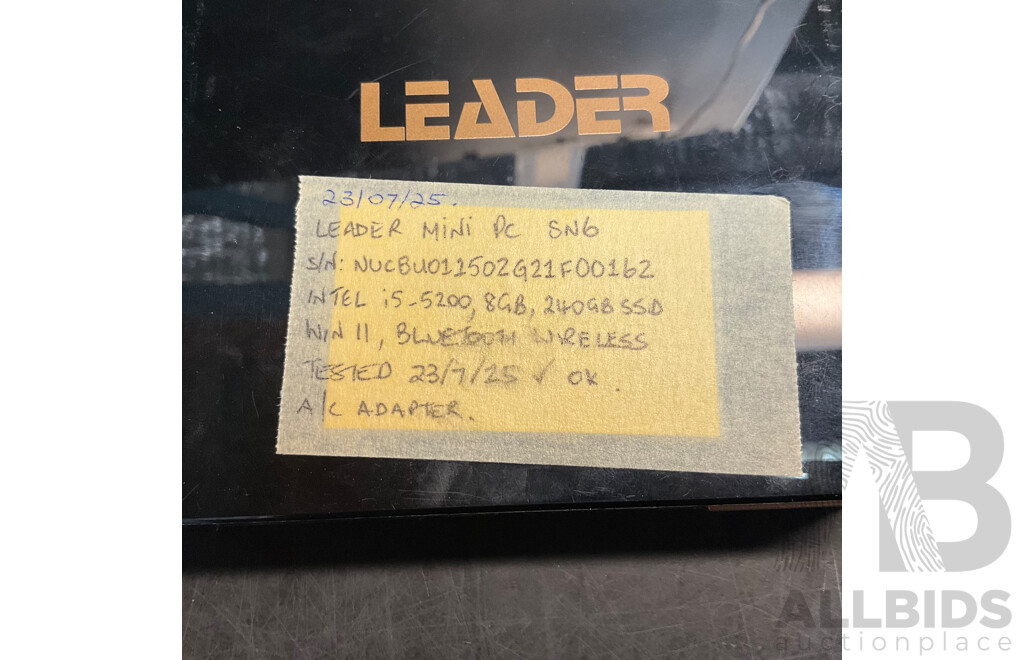 LEADER
23/07/25.
LEADER MINI PC SN6
S/N: NUCBU011502G21F00162
INTEL i5-5200, 8GB, 240GB SSD
WIN 11, BLUETOOTH WIRELESS
TESTED 23/7/25 ✓ OK.
A/C ADAPTER.
AB
ALLBIDS
auctionplace